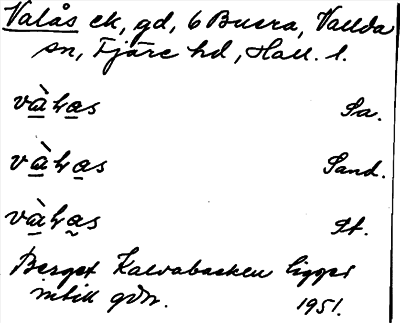 Valås ek, gd, 6 Buera, Vallda
sn, Fjäre hd, Hall. l.
Sa.
Sand.
St.
Berget Kalvabacken ligger
intill gdn. 1951.